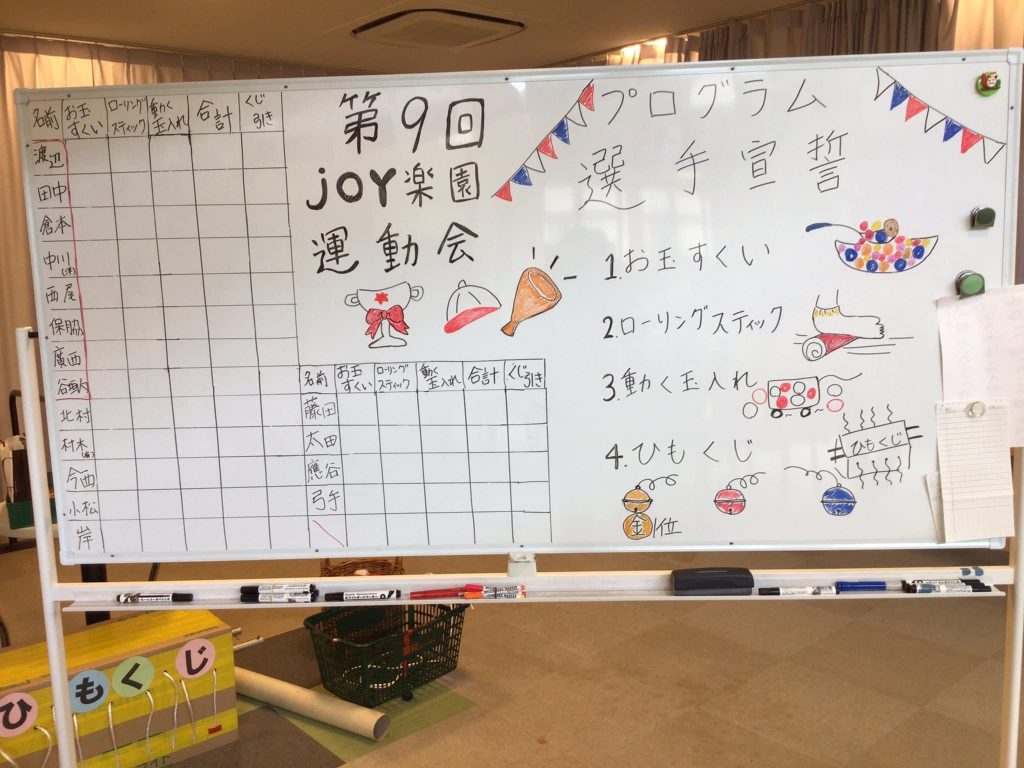 名前 お玉すくい ローリングスティック 動く玉入れ 合計 くじ引き
渡辺
田中
倉本
中川
西尾
保脇
廣西
谷垣内
北村
村木
今西
小松
岸
第9回
joy楽園
運動会
名前 お玉すくい ローリングスティック 動く玉入れ 合計 くじ引き
藤田
太田
應谷
弓手
プログラム
選手宣誓
1.お玉すくい
2.ローリングスティック
3.動く玉入れ
4.ひもくじ
ひもくじ
金1位
ひもくじ